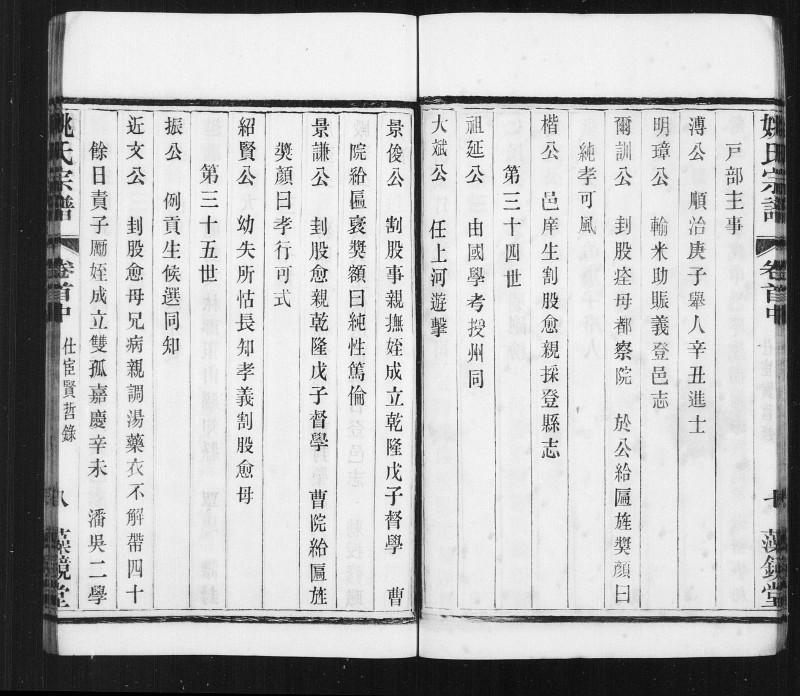 姚氏宗譜 卷首中 仕宦賢哲錄 七 藻鏡堂
戶部主事
溥公 順治庚子舉人辛丑進士
明璋公 輸米助賑義登邑志
爾訓公 刲股痊母都察院 於公給匾旌奬顏曰
純孝可風
楷公 邑庠生割股愈親採登縣志
第三十四世
祖延公 由國學考授州同
大斌公 任上河遊擊
景俊公 割股事親撫姪成立乾隆戊子督學 曹
院給匾褒奬額曰純性篤倫
景謙公 刲股愈親乾隆戊子督學 曹院給匾旌
奬顏曰孝行可式
紹賢公 幼失所怙長知孝義割股愈母
第三十五世
振公 例貢生候選同知
近文公 刲股愈母兄病親調湯藥衣不解帶四十
餘日責子勵姪成立雙孤嘉慶辛未 潘吳二學
姚氏宗譜 卷首中 仕宦賢哲錄 八 藻鏡堂